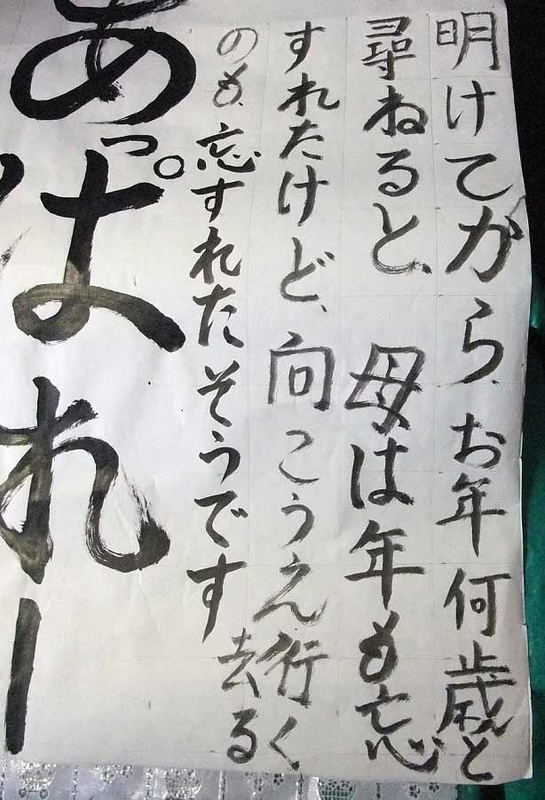 明けてから、お年何歳と
尋ねると、母は年も忘
すれたけど、向こうえ行く
のも、忘すれたそうです
去る
あっぱれー